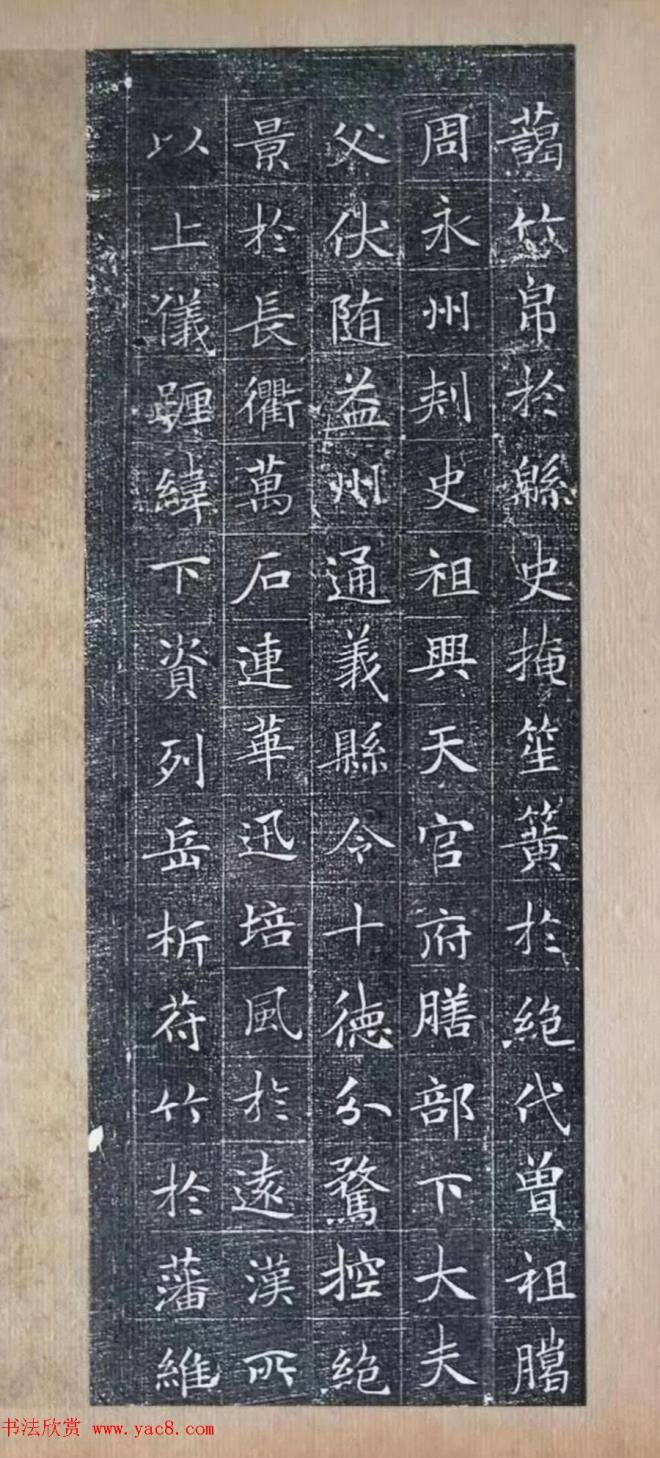 藹竹帛於緜史掩笙簧於絶代曽祖騰
周永州刾史祖興天官府膳部下大夫
父伏随益州通義縣令十徳分騖控絶
景於長衢萬石連華迅培風於遠漢所
以上儀躔緯下資列岳析苻竹於藩維
书法欣赏 www.yac8.com